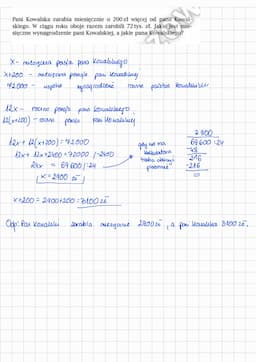 Pani Kowalska zarabia miesięcznie o 200 zł więcej od pana Kowal-
skiego. W ciągu roku oboje razem zarobili 72 tys. zł. Jakie jest mie-
sięczne wynagrodzenie pani Kowalskiej, a jakie pana Kowalskiego?
x - miesięczna pensja pana Kowalskiego
x+200 - miesięczna pensja pani Kowalskiej
72.000 - wynagrodzenie roczne państwa Kowalskich
12x - roczna pensja pana Kowalskiego
12(x+200) - roczna pensja pani Kowalskiej
12x + 12(x+200) = 72000
12x + 12x + 2400 = 72000 /-2400
24x = 69600 /:24
x = 2900 zł
gdy nie ma
kalkulatora
trzeba obliczyć
pisemnie
2900
69600:24
-48
216
-216
0
x+200 = 2900+200 = 3100 zł
Odp: Pan Kowalski zarabia miesięcznie 2900 zł, a pani Kowalska 3100 zł.